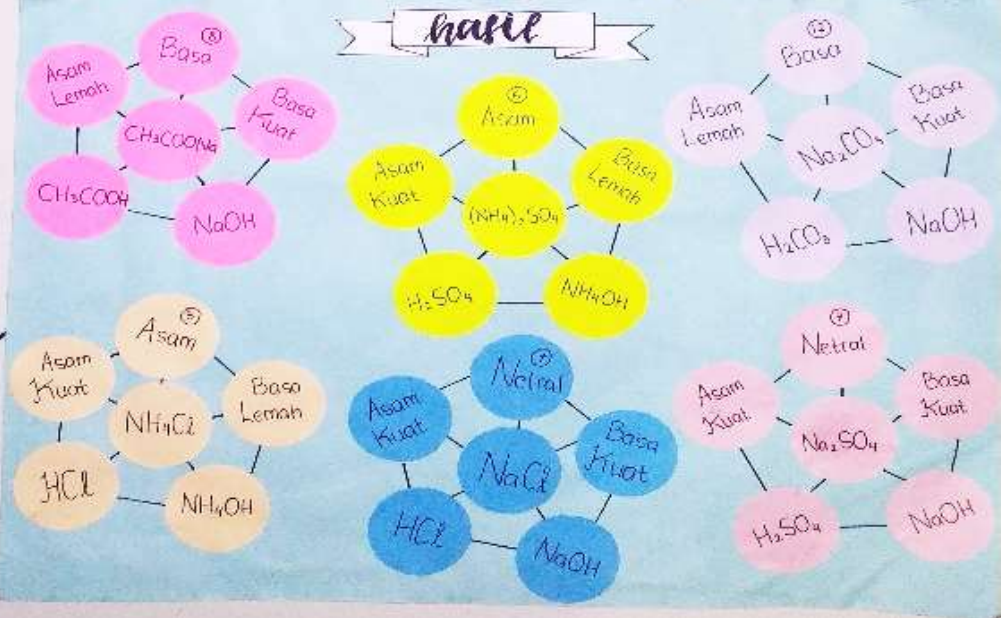 hasil
8
Basa
Asam
Lemah
Basa
Kuat
CH₃COONa
CH₃COOH
NaOH
6
Asam
Asam
Kuat
Basa
Lemah
(NH₄)₂SO₄
H₂SO₄
NH₄OH
12
Basa
Asam
Lemah
Basa
Kuat
H₂CO₃
NaOH
5
Asam
Asam
Kuat
Basa
Lemah
NH₄Cl
HCl
NH₄OH
7
Netral
Asam
Kuat
Basa
Kuat
NaCl
HCl
NaOH
7
Netral
Asam
Kuat
Basa
Kuat
Na₂SO₄
H₂SO₄
NaOH